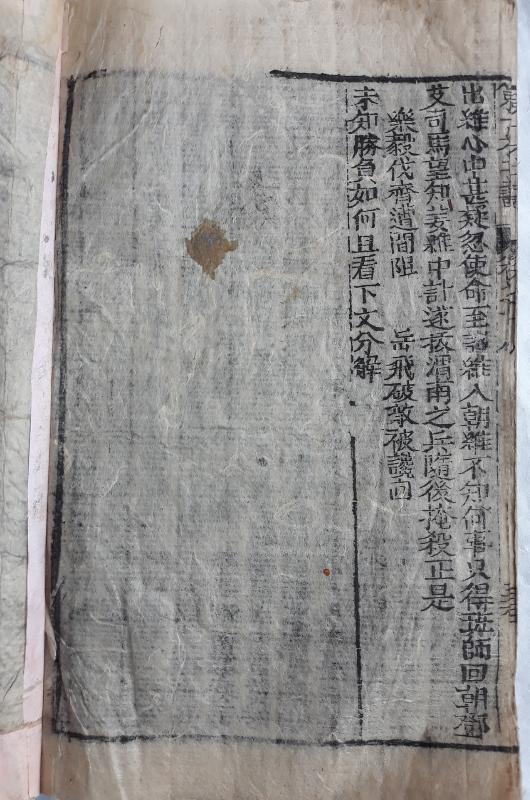 出維心中甚疑忽使命至詔維入朝維不知何事只得班師回朝鄧
艾司馬望知姜維中計遂拔渭南之兵隨後掩殺正是
樂毅伐齊遭間阻　岳飛破敵被讒回
未知勝負如何且看下文分解